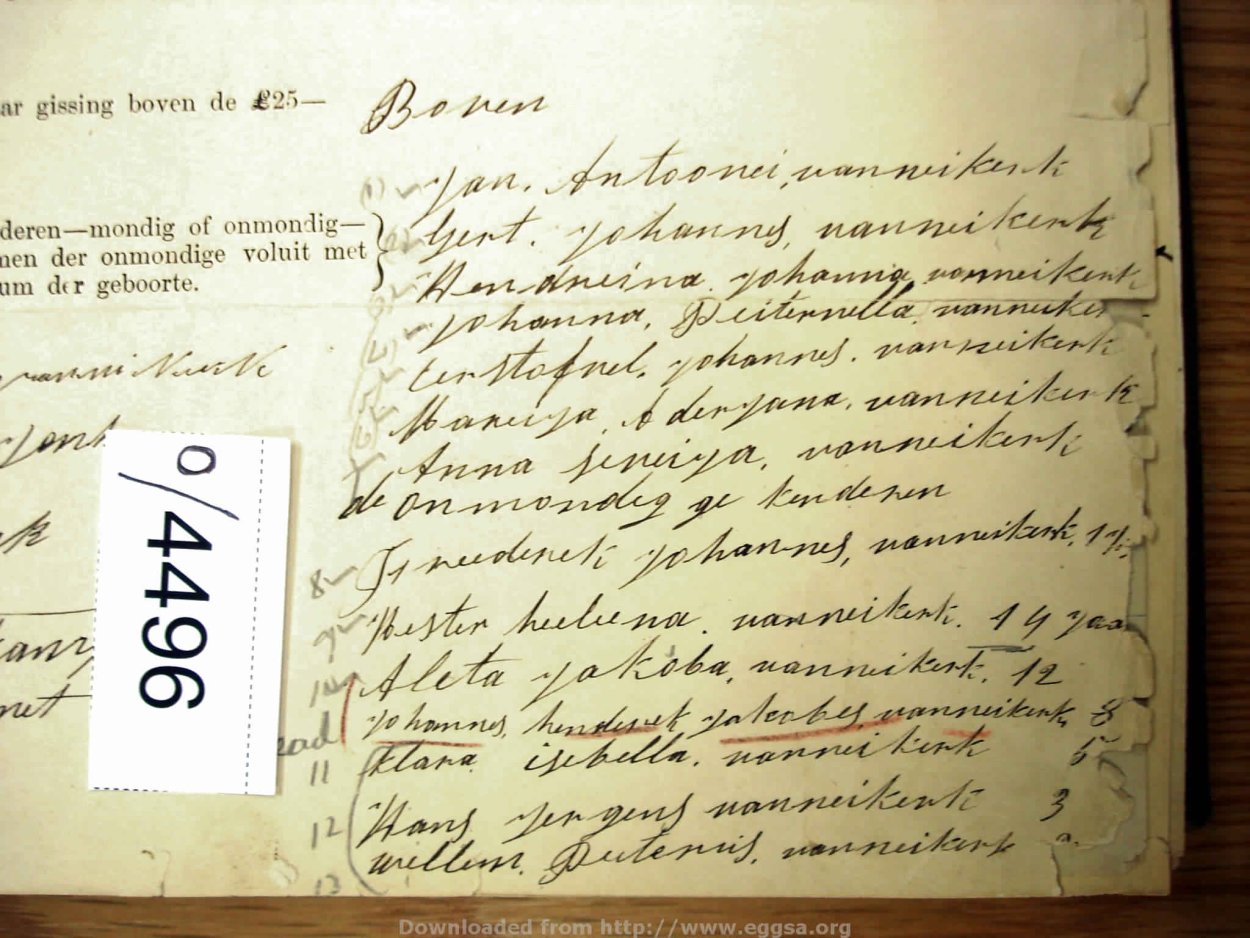 ar gissing boven de £25—
Boven
deren—mondig of onmondig—
men der onmondige voluit met
um der geboorte.
Jan. Antoonei, vanneikerk
Gert. Johannes, vanneikerk
Hendreina. Johanna, vanneikerk
Johanna, Peiternella, vanneiker
Cerstofnel. Johannes. vanneikerk
Mareiya, Aderyana, vanneikerk
Anna seneiya, vanneikerk
de onmondig ge kenderen
8 Freederek Johannes, vanneikerk, 17
9 Hester heleena. vanneikerk. 14 yaa
10 Aleta yakoba, vanneikerk. 12
Johannes, henderek yakobes, vanneikerk, 8
11 klara isebella. vanneikerk 5
12 Hans Jergens vanneikerk 3
13 wellem. Peiternis, vanneikerk
0/4496
Downloaded from http://www.eggsa.org